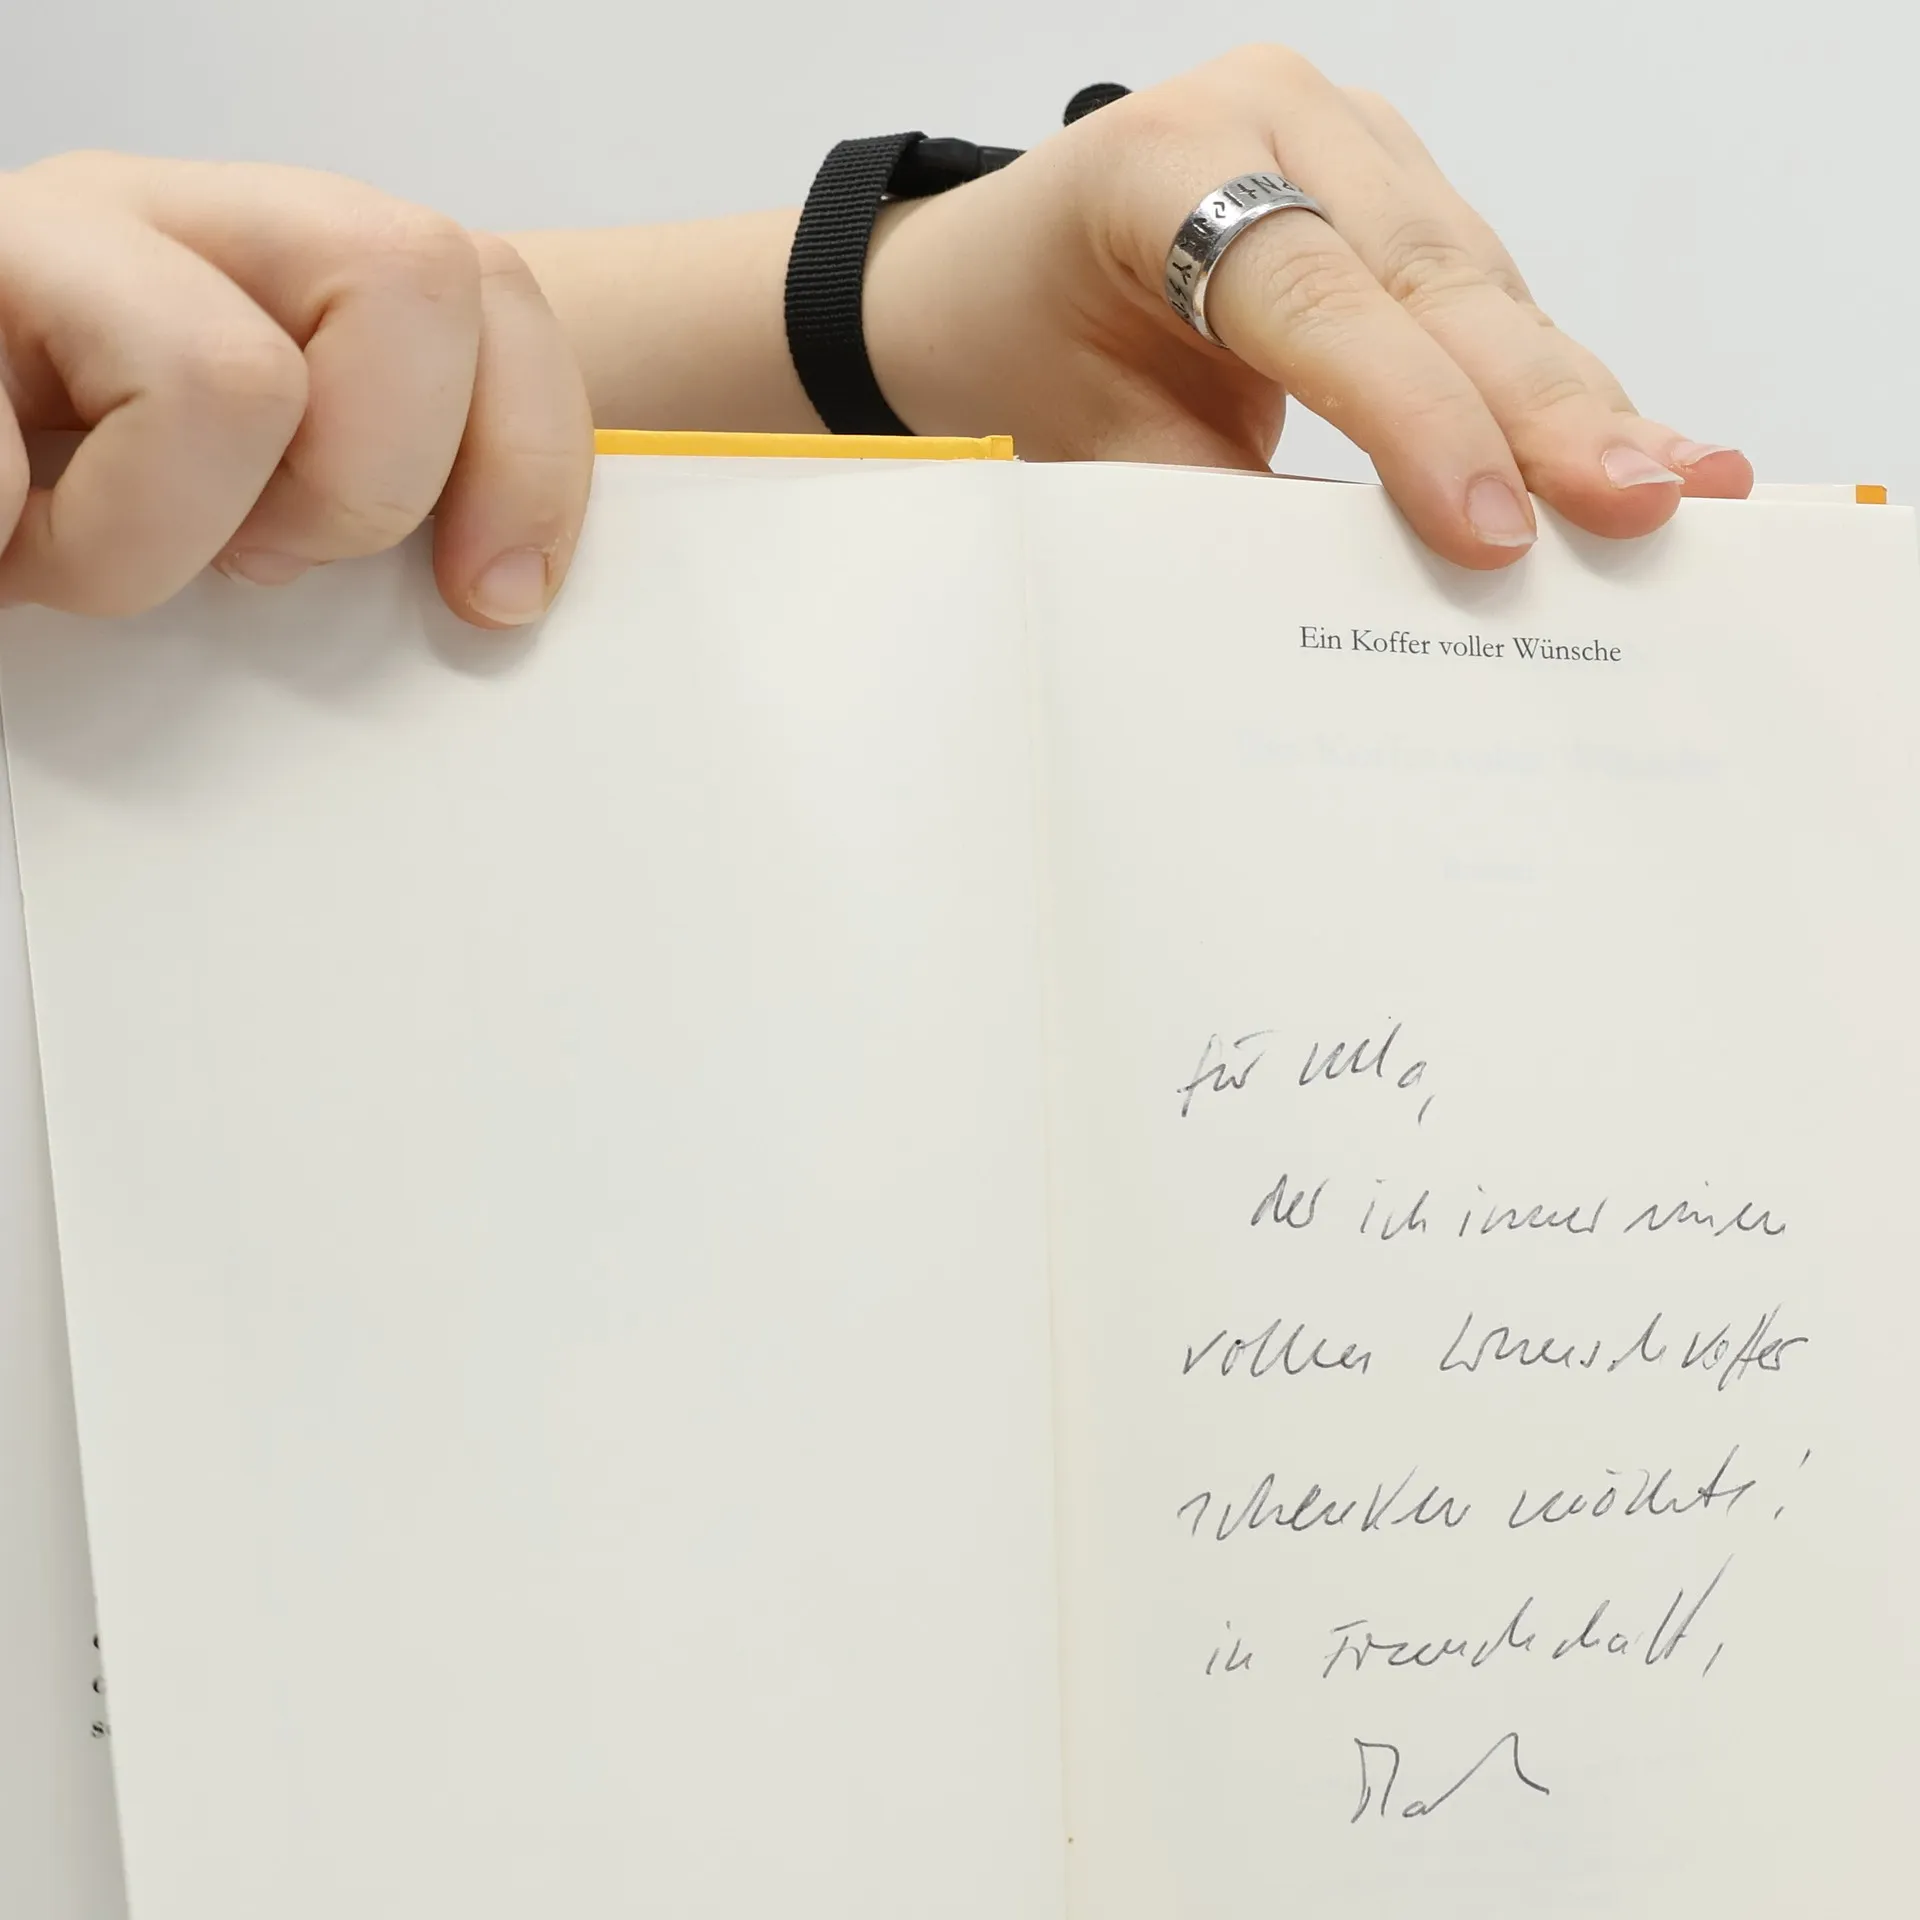 Ein Koffer voller Wünsche
für
der ich immer einen
vollen Wunschkoffer
schenken möchte!
in Freundschaft,